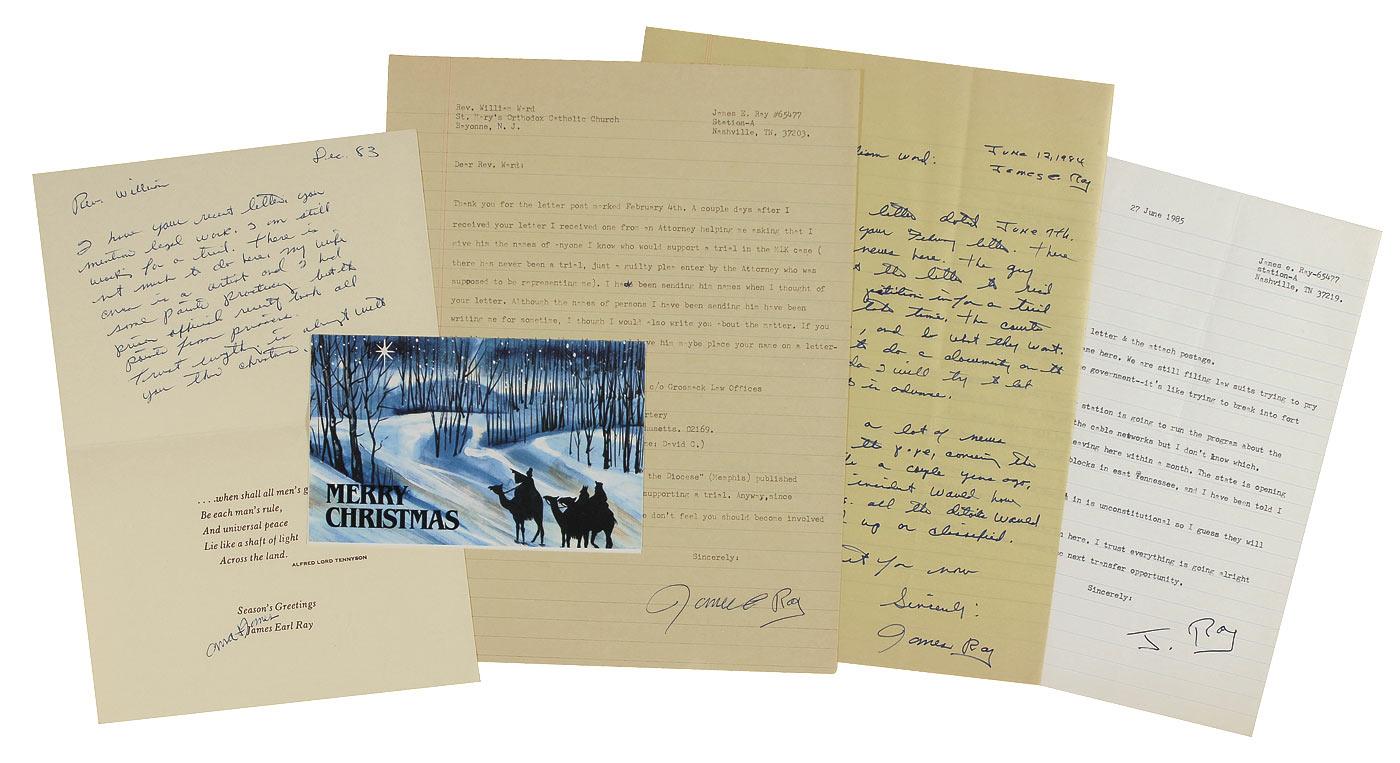 Dec. 83
Rev. William
I have your recent letter. you
mention legal work. I am still
working for a trial. There is
not much to do here. My wife
anna is a artist and I had
some paints previously but the
prison official recently took all
paints from prisoners.
Trust everything is alright with
you this christmas.
....when shall all men's g
Be each man's rule,
And universal peace
Lie like a shaft of light
Across the land.
ALFRED LORD TENNYSON
Season's Greetings
James Earl Ray
anna & James
MERRY
CHRISTMAS
Rev. William Ward
St. Mary's Orthodox Catholic Church
Bayonne, N. J.
James E. Ray #65477
Station-A
Nashville, TN. 37203.
Dear Rev. Ward:
Thank you for the letter post marked February 4th. A couple days after I
received your letter I received one from an Attorney helping me asking that I
give him the names of anyone I know who would support a trial in the MLK case (
there has never been a trial, just a guilty plea enter by the Attorney who was
supposed to be representing me). I had been sending his names when I thought of
your letter. Although the names of persons I have been sending him have been
writing me for sometime, I though I would also write you about the matter. If you
have him maybe place your name on a letter-
c/o Grossack Law Offices
rtery
husetts. 02169.
me: David C.)
the Diocese" (Memphis) published
supporting a trial. Anyway,since
don't feel you should become involved
Sincerely:
James E Ray
liam Ward:
June 12, 1984
James E. Ray
letter dated June 7th.
your February letter. There
news here. The guy
the letter to said
petition in for a trial
late time. The courts
, and do what they want.
to do a documentry on the
I will try to let
in advance.
a lot of news
the pope, concerning the
a couple years ago,
incident would have
all the details would
up or classified.
for now
Sincerely:
James Ray
27 June 1985
James e. Ray-65477
station-A
Nashville, TN, 37219.
letter & the attach postage.
me here. We are still filing law suits trying to pry
e government--it's like trying to break into fort
station is going to run the program about the
the cable networks but I don't know which.
eaving here within a month. The state is opening
blocks in east Tennessee, and I have been told I
in is unconstitutional so I guess they will
here. I trust everything is going alright
next transfer opportunity.
Sincerely:
J. Ray